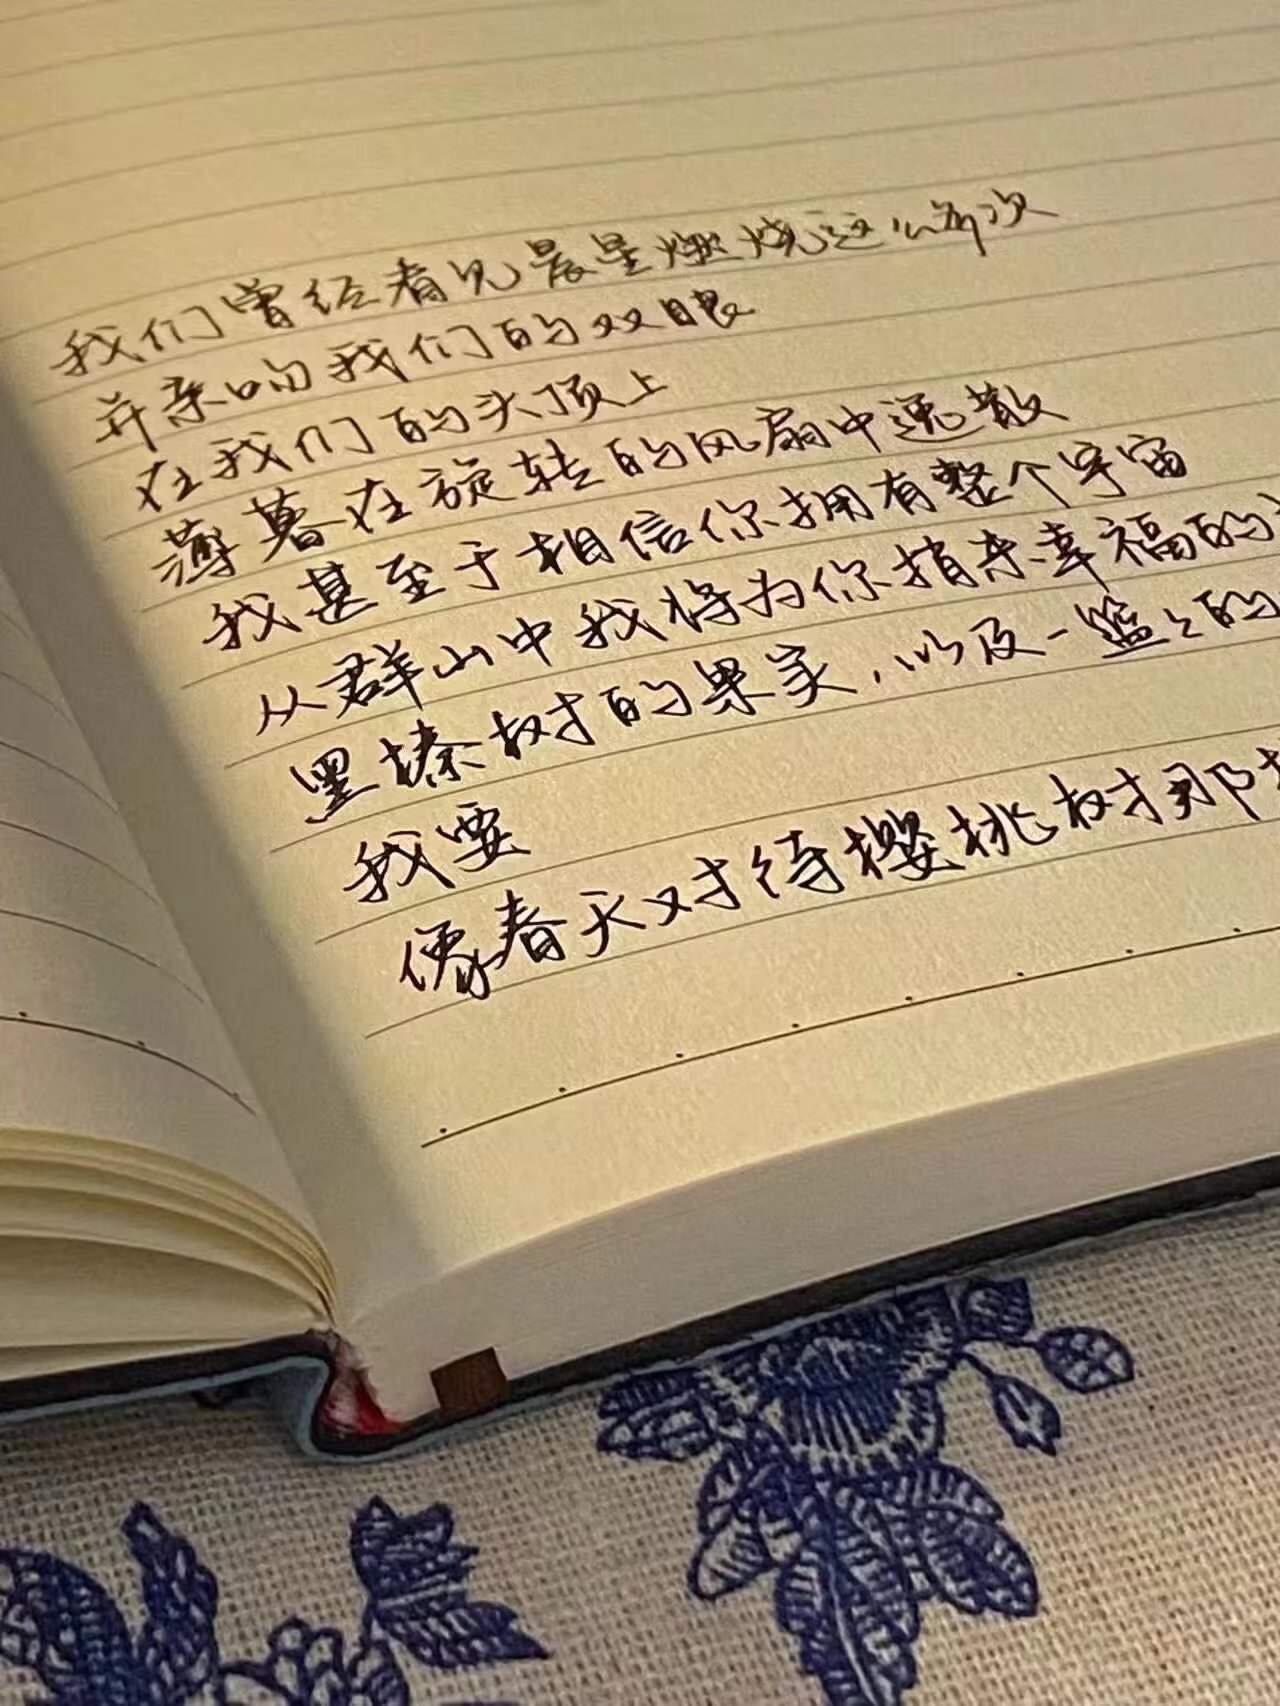 我们曾经看见晨星燃烧这么多次
并亲吻我们的双眼
在我们的头顶上
薄暮在旋转的风扇中逸散
我甚至于相信你拥有整个宇宙
从群山中我将为你捎来幸福的
黑榛树的果实，以及一篮篮的
我要
像春天对待樱桃树那